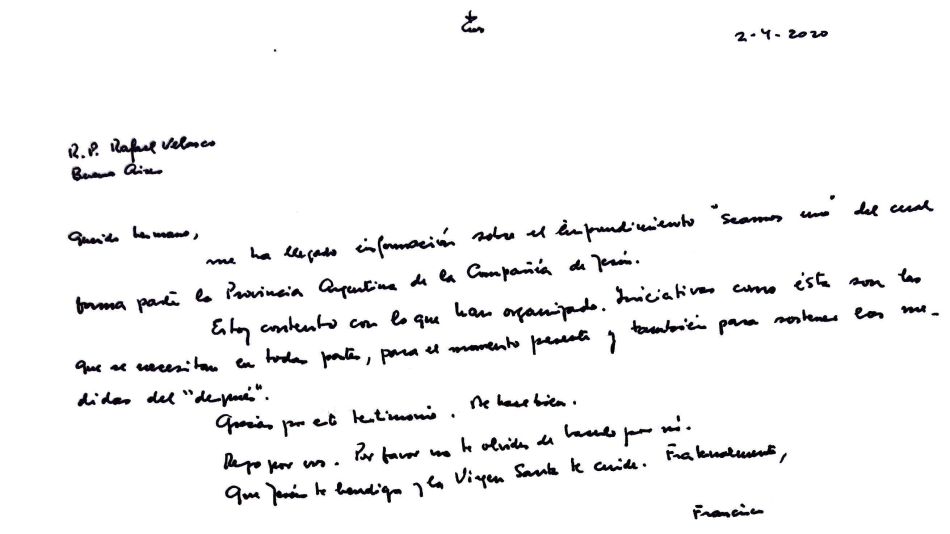 2-4-2020
R.P. Rafael Velasco
Buenos Aires
Querido hermano,
me ha llegado información sobre el emprendimiento "Seamos uno" del cual
forma parte la Provincia Argentina de la Compañía de Jesús.
Estoy contento con lo que han organizado. Iniciativas como ésta son las
que se necesitan en todas partes, para el momento presente y también para sostener las me-
didas del "después".
Gracias por este testimonio. Me hace bien.
Rezo por vos. Por favor no te olvides de hacerlo por mí.
Que Jesús te bendiga y la Virgen Santa te cuide. Fraternalmente,
Francisco